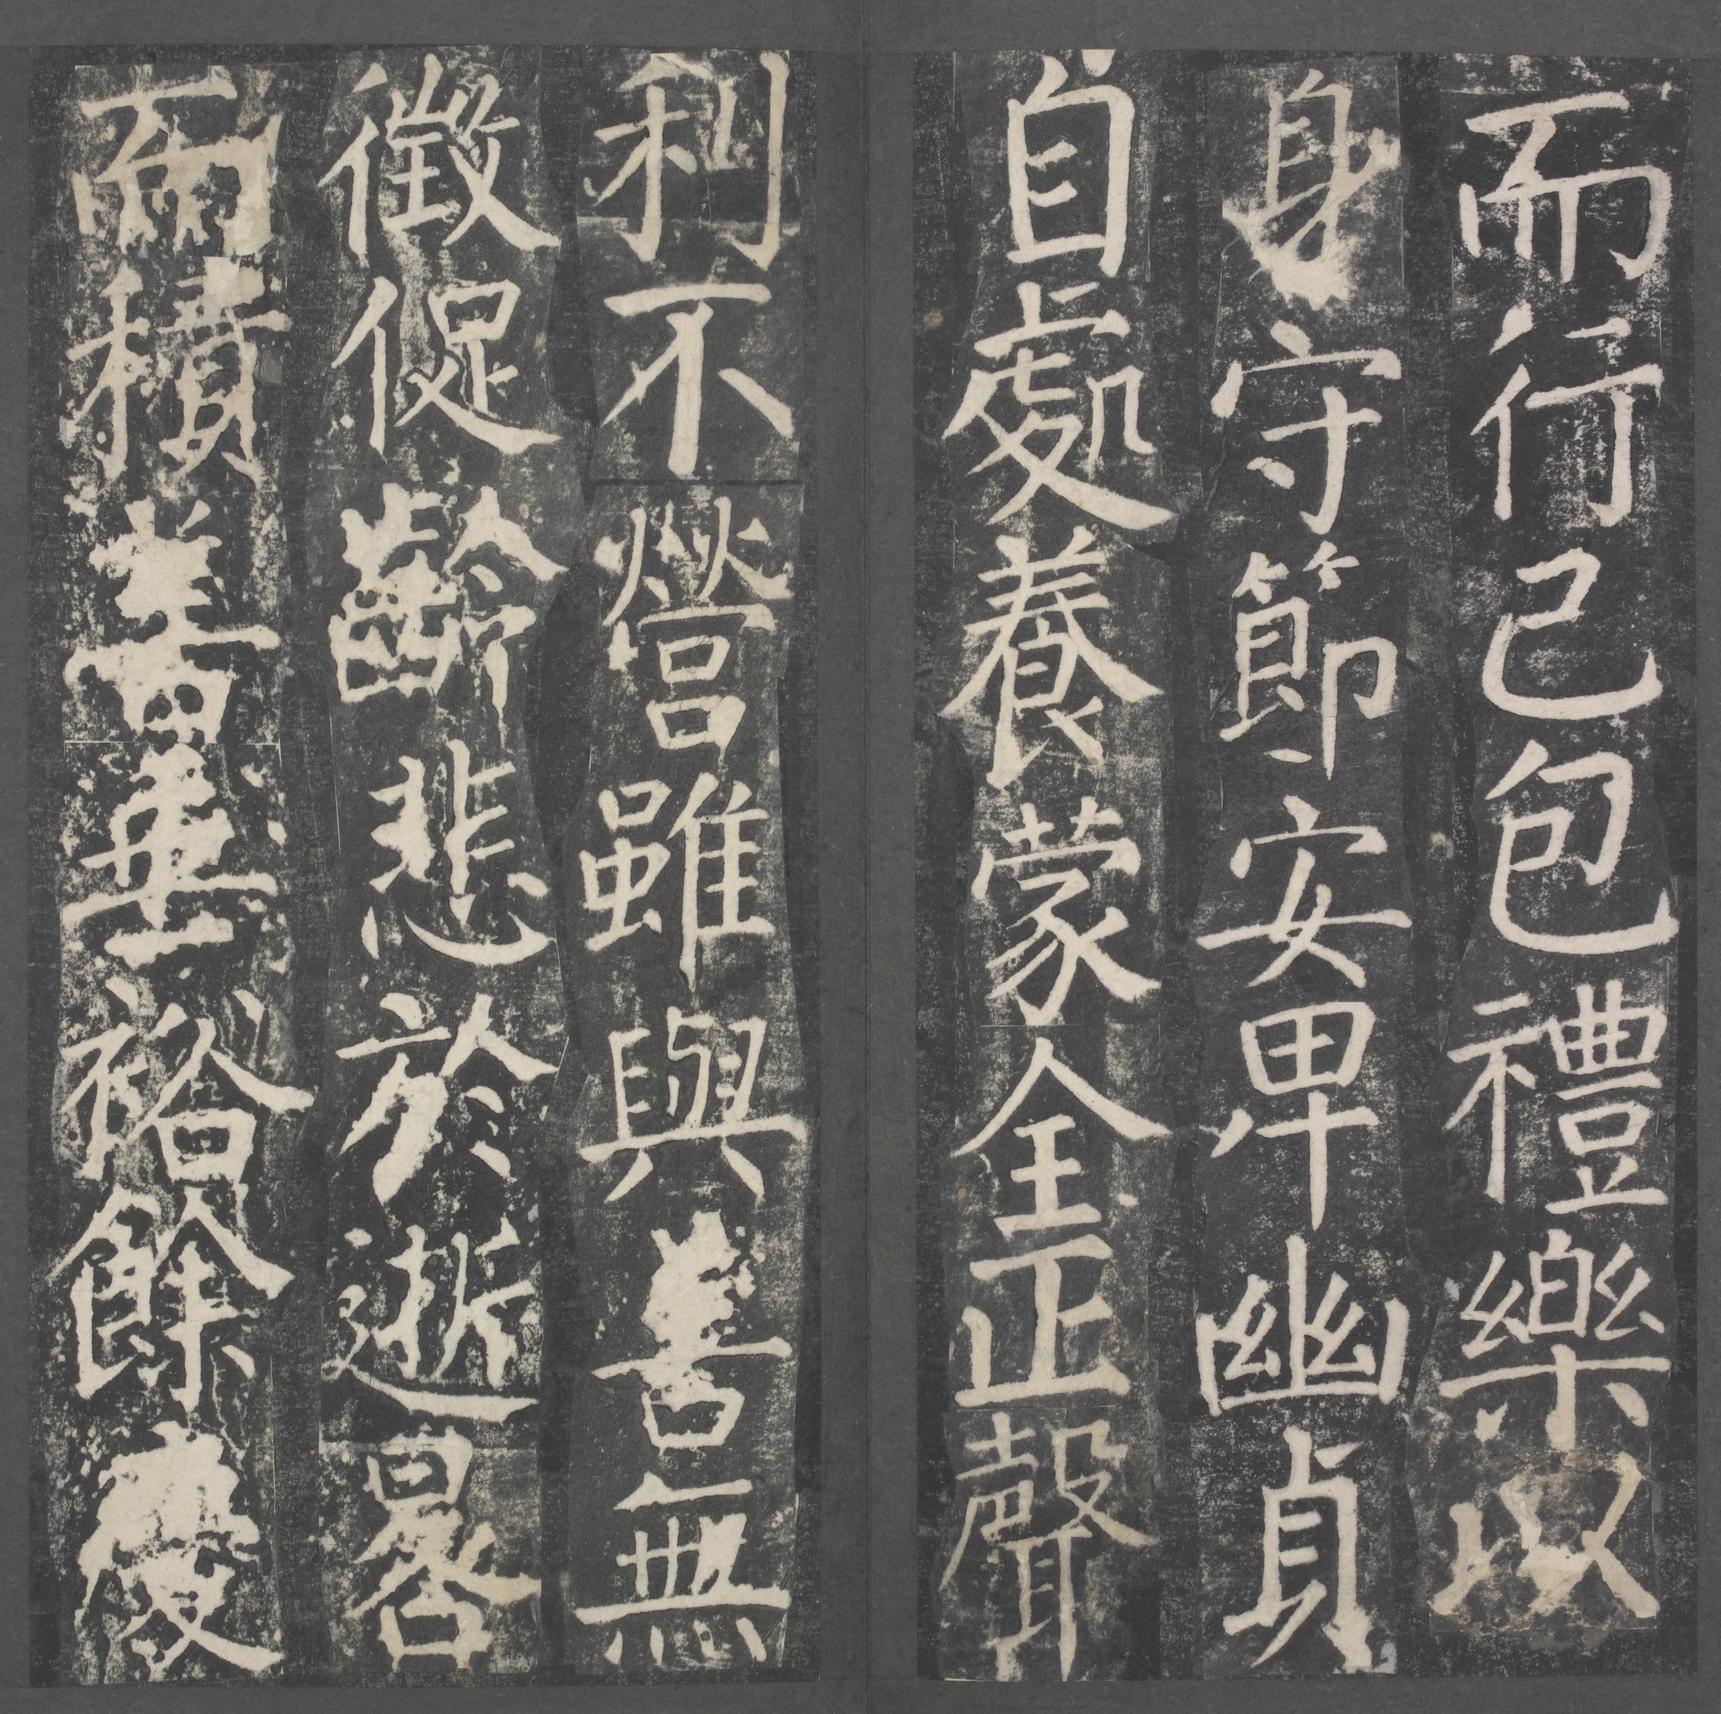 而行己包禮樂以
身守節安卑幽貞
自處養蒙全正聲
利不營雖與善無
徵促齡悲於逝晷
而積善垂裕餘慶